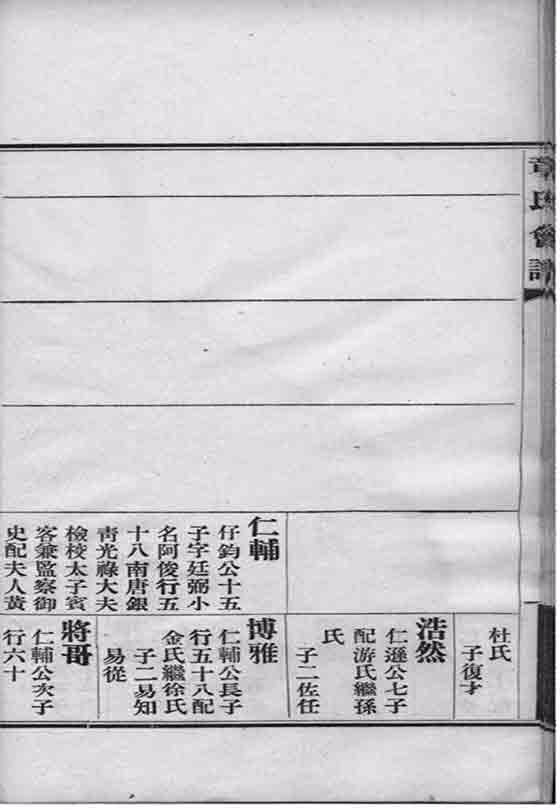 章氏會譜
仁輔
仔鈞公十五
子字廷弼小
名阿俊行五
十八南唐銀
青光祿大夫
檢校太子賓
客兼監察御
史配夫人黃
杜氏
子復才
浩然
仁遜公七子
配游氏繼孫
氏
子二佐任
博雅
仁輔公長子
行五十八配
金氏繼徐氏
子二易知
易從
將哥
仁輔公次子
行六十